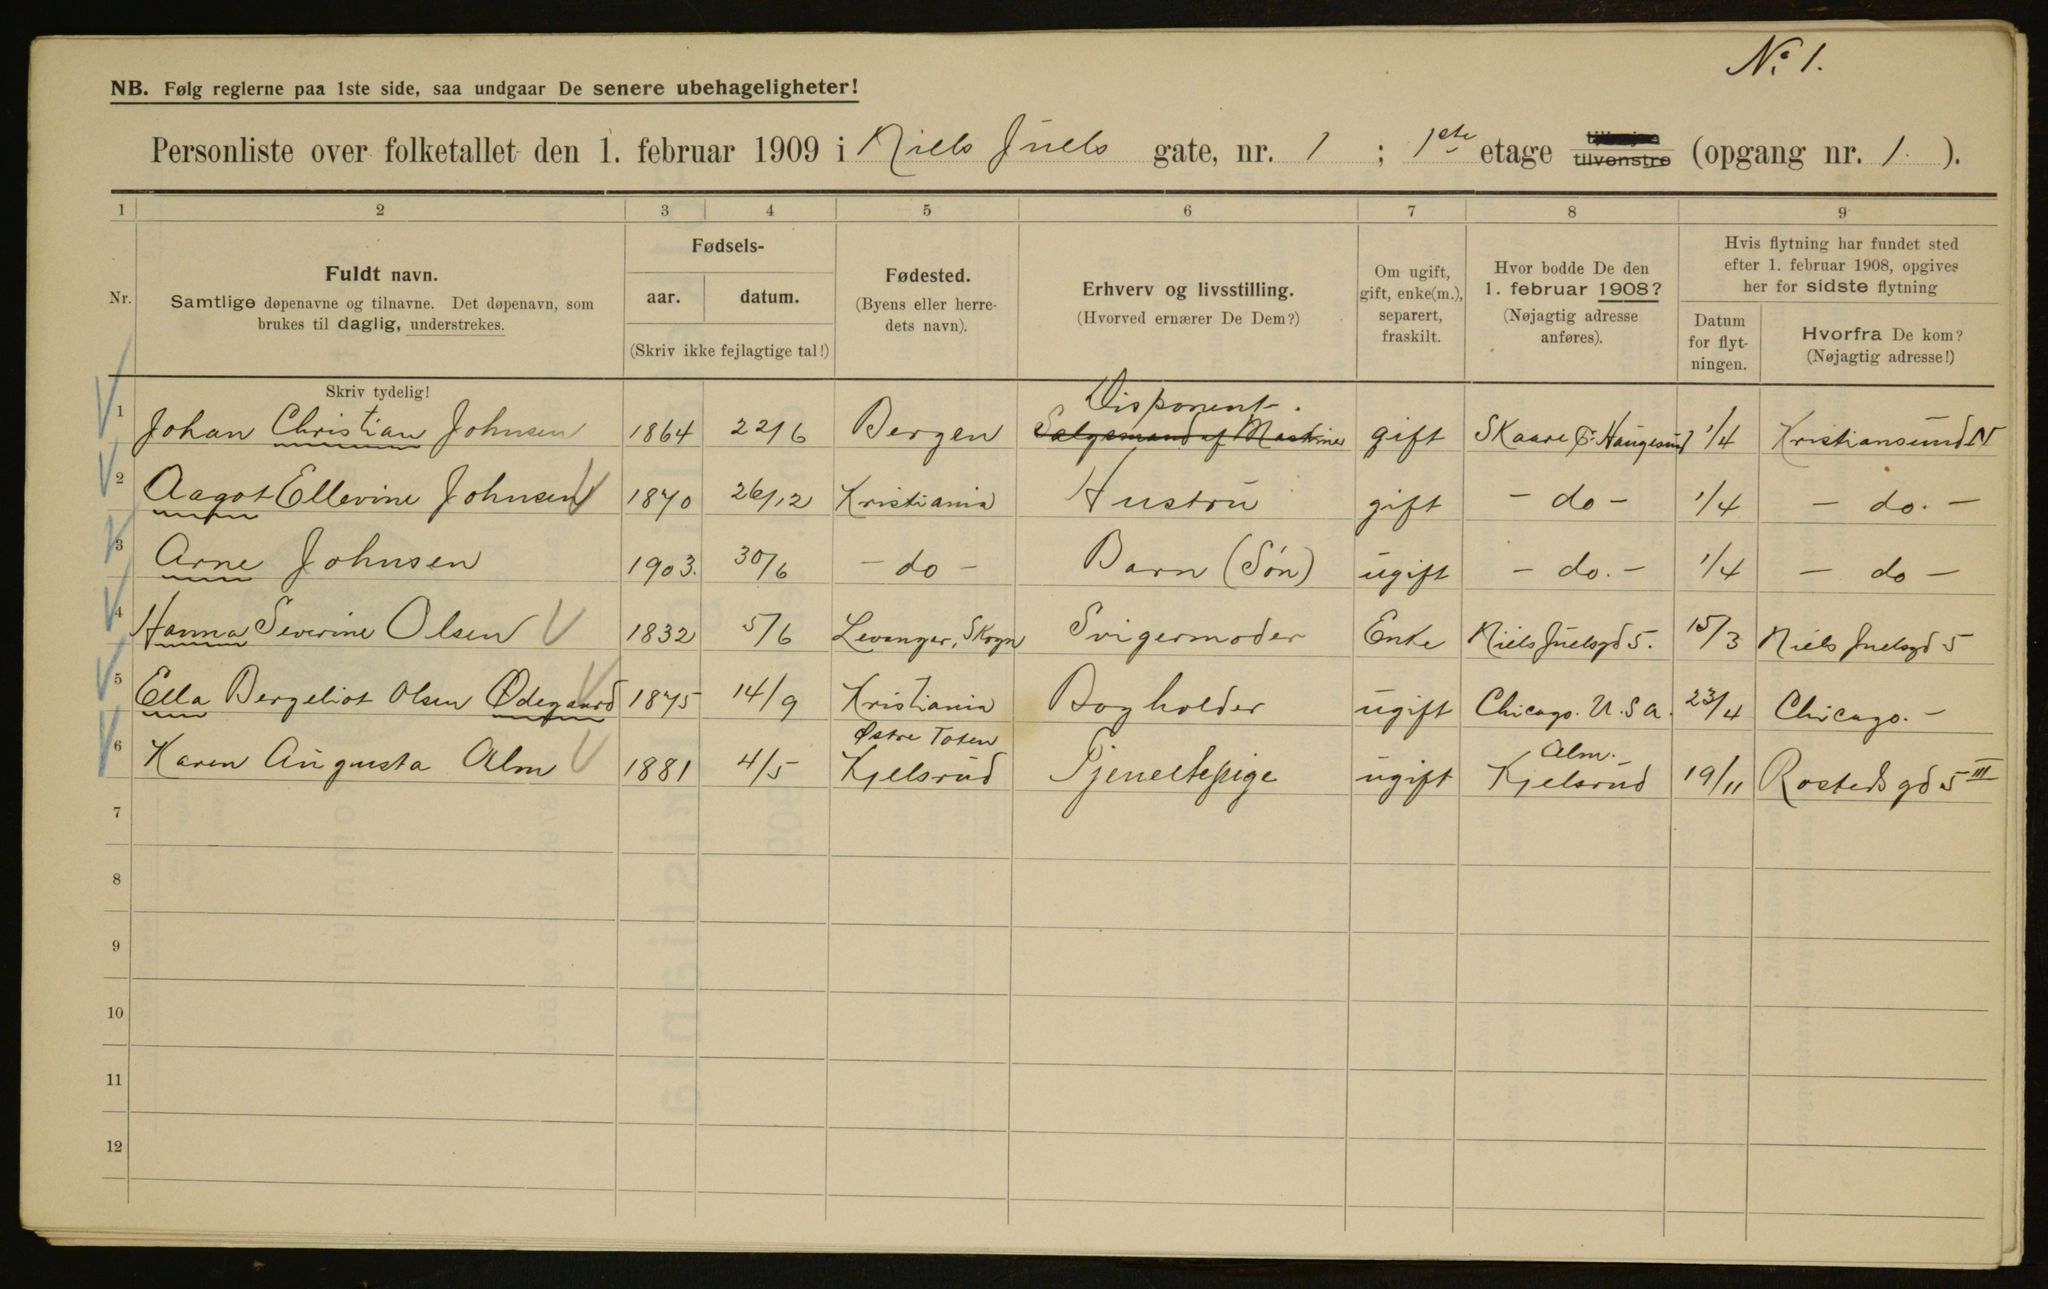 Nº 1.
NB. Følg reglerne paa 1ste side, saa undgaar De senere ubehageligheter!
Personliste over folketallet den 1. februar 1909 i Niels Juels gate, nr. 1 ; 1ste etage tilvenstre (opgang nr. 1. ).
1 2 3 4 5 6 7 8 9
Nr.
Fuldt navn.
Samtlige døpenavne og tilnavne. Det døpenavn, som
brukes til daglig, understrekes.
Fødsels-
aar. datum.
(Skriv ikke fejlagtige tal!)
Fødested.
(Byens eller herre-
dets navn).
Erhverv og livsstilling.
(Hvorved ernærer De Dem?)
Om ugift,
gift, enke(m.),
separert,
fraskilt.
Hvor bodde De den
1. februar 1908?
(Nøjagtig adresse
anføres).
Hvis flytning har fundet sted
efter 1. februar 1908, opgives
her for sidste flytning
Datum
for flyt-
ningen.
Hvorfra De kom?
(Nøjagtig adresse!)
Skriv tydelig!
Disponent.
1 Johan Christian Johnsen 1864 22/6 Bergen Salgsmand af Maskiner gift Skaare p. Haugesund 1/4 Kristiansund N
2 Aagot Ellevine Johnsen 1870 26/12 Kristiania Hustru gift - do - 1/4 - do. -
3 Arne Johnsen 1903. 30/6 - do - Barn (Søn) ugift - do. - 1/4 - do -
4 Hanna Severine Olsen 1832 5/6 Levanger, Skogn Svigermoder Enke Niels Juelsgd 5. 15/3 Niels Juelsgd 5
5 Ella Bergeliot Olsen Ødegaard 1875 14/9 Kristiania Bogholder ugift Chicago. U.S.A. 23/4 Chicago. -
Østre Toten Alm.
6 Karen Augusta Alm 1881 4/5 Kjelsrud Tjenestepige ugift Kjelsrud 19/11 Rostedsgd 5 III
7
8
9
10
11
12